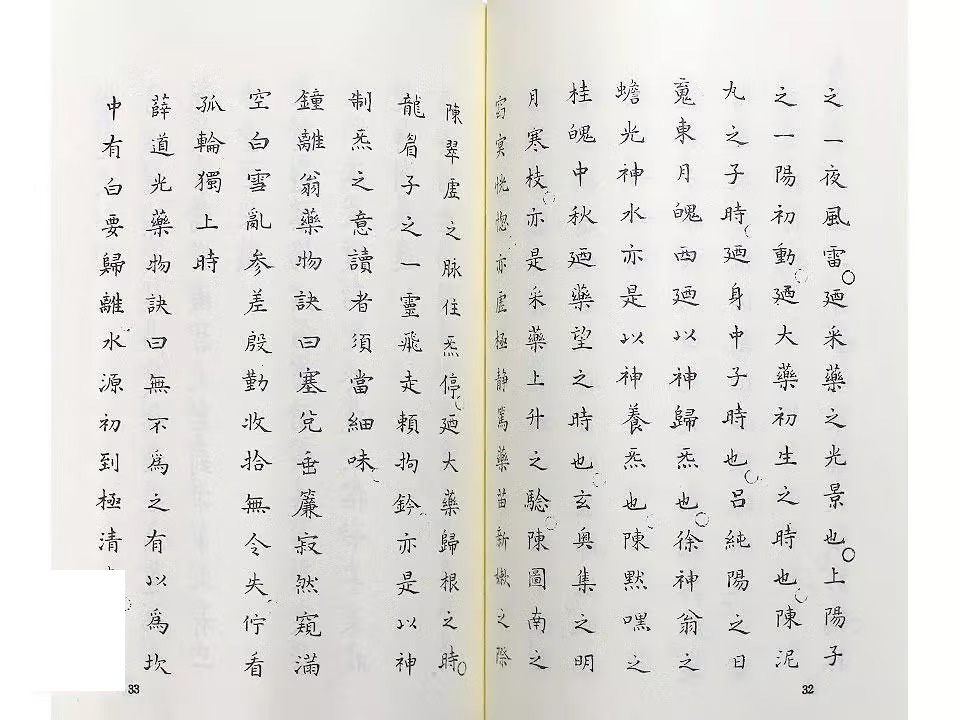 之一夜風雷廼采藥之光景也上陽子
之一陽初動廼大藥初生之時也陳泥
丸之子時廼身中子時也呂純陽之日
䰟東月魄西廼以神歸炁也徐神翁之
蟾光神水亦是以神養炁也陳默嘿之
桂魄中秋廼藥望之時也玄奥集之明
月寒枝亦是采藥上升之騐陳圖南之
窈冥恍惚亦虛極靜篤藥苗新嫰之際
32
陳翠虛之脉住炁停廼大藥歸根之時
龍眉子之一靈飛走賴拘鈐亦是以神
制炁之意讀者須當細味
鐘離翁藥物訣曰塞兌垂簾寂然窺滿
空白雪亂參差殷勤收拾無令失佇看
孤輪獨上時
薛道光藥物訣曰無不為之有以為坎
中有白要歸離水源初到極清
33